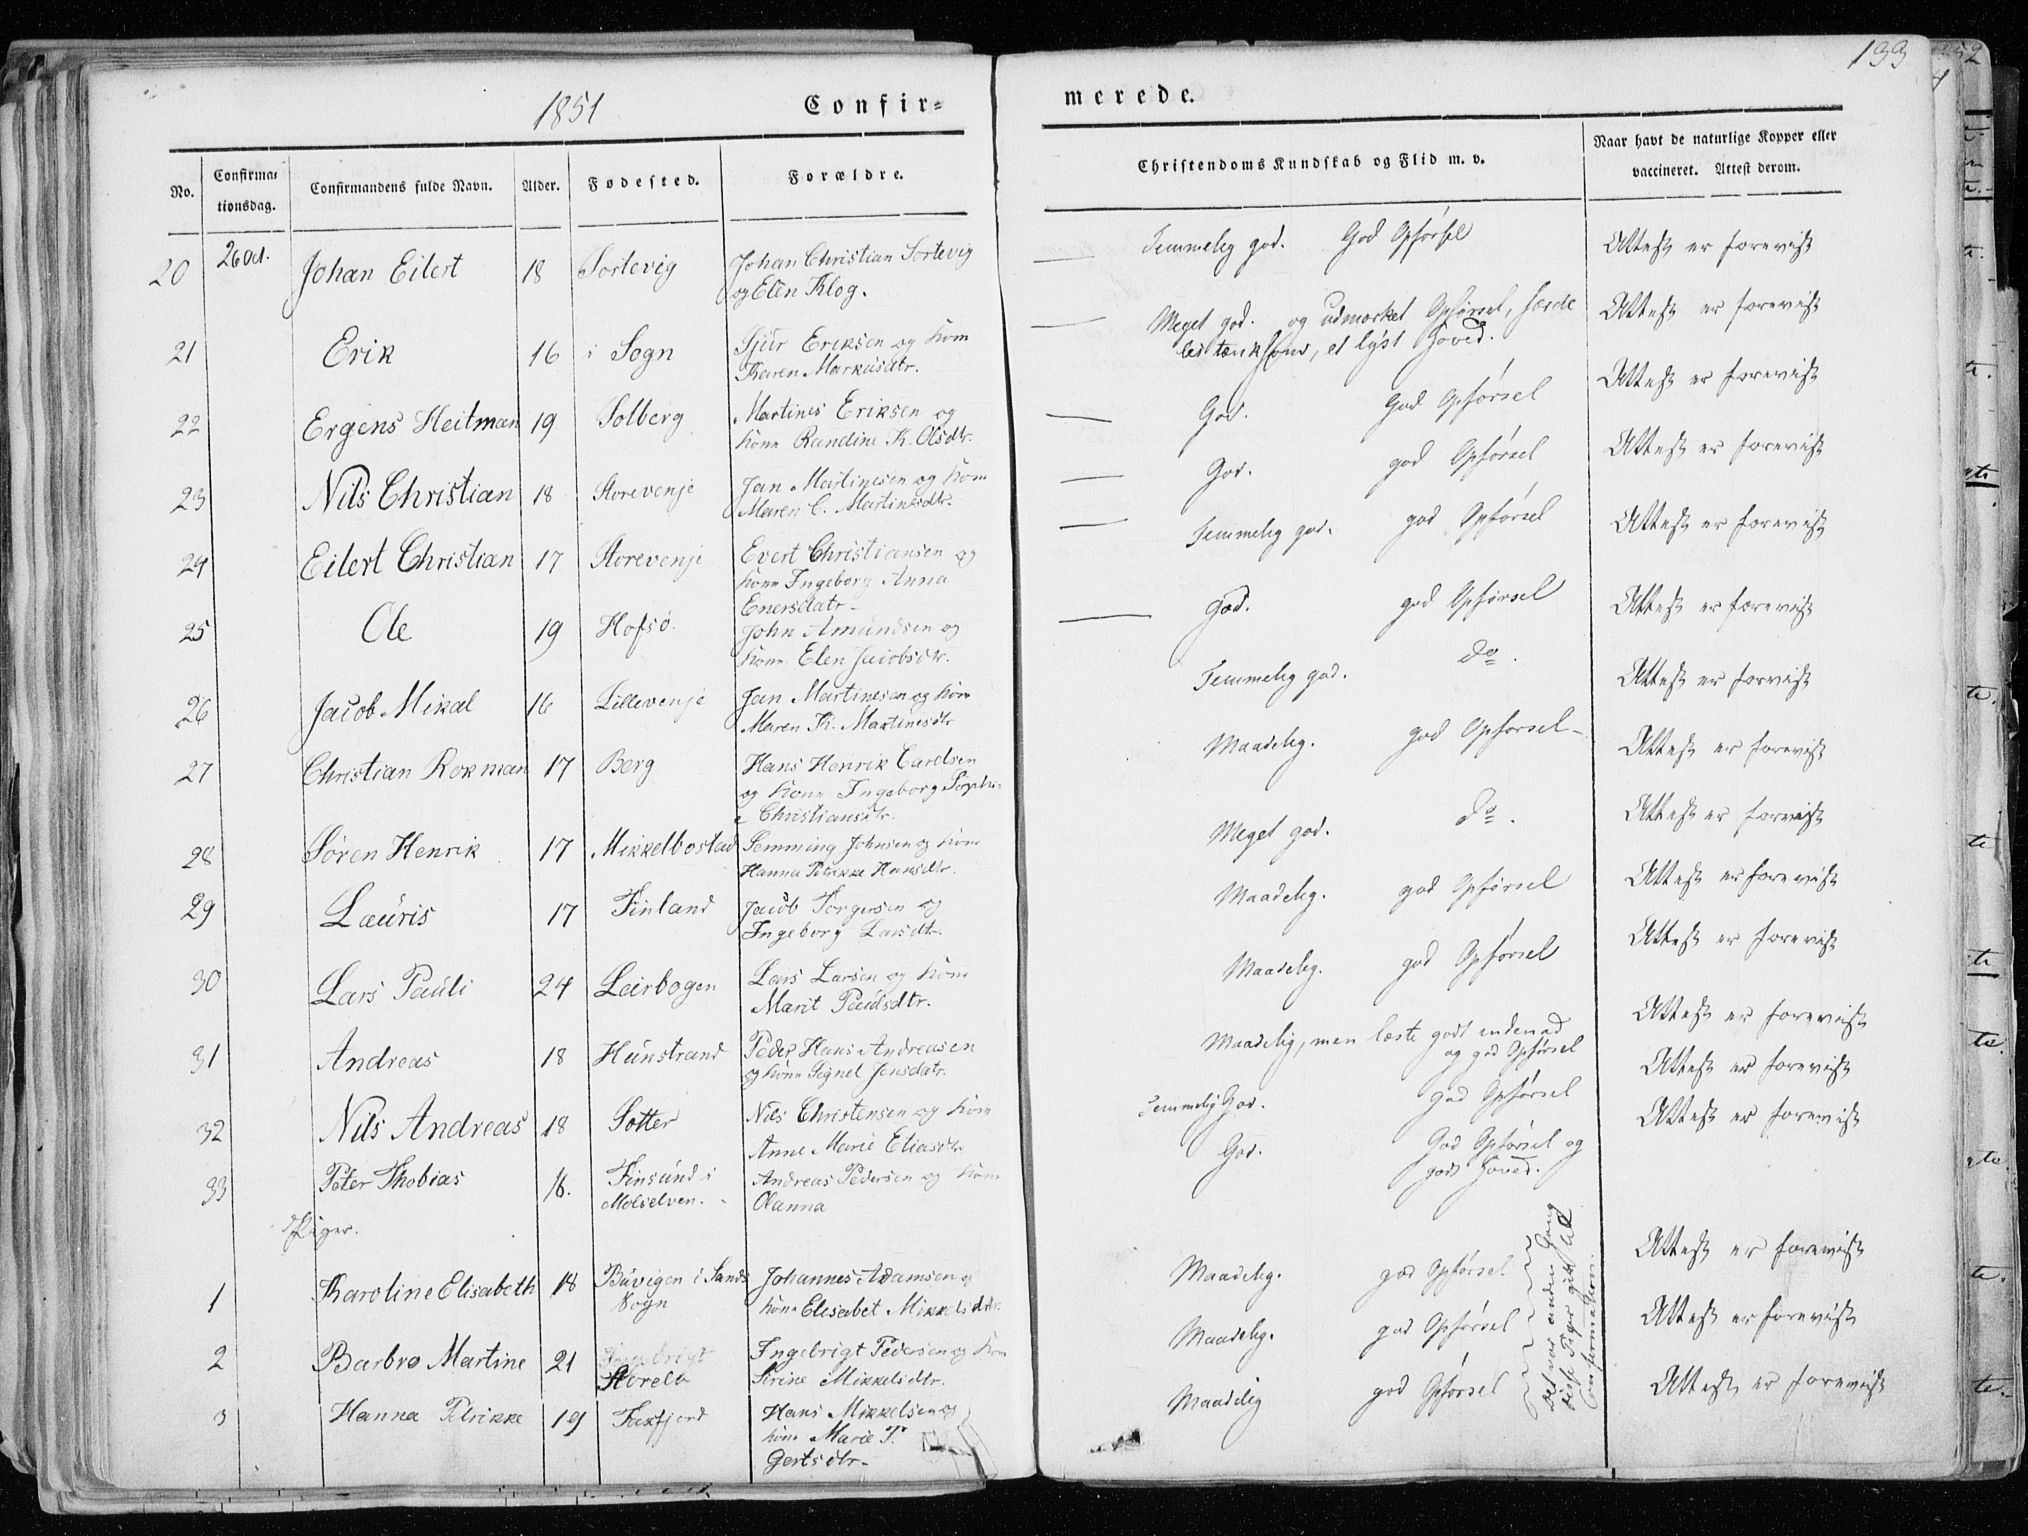 1851
Confir-
merede.
133
No.
Confirma-
tionsdag.
Confirmandens fulde Navn.
Alder.
Fødested.
Forældre.
Christendoms Kundskab og Flid m. v.
Naar havt de naturlige Kopper eller
vaccineret. Attest derom.
20 26 Oct. Johan Eilert 18 Sortevig Johan Christian Sortevig
og Elen Klog.
Temmelig god. God Opførsel Attest er forevist
21 Erik 16 i Sogn Sjur Eriksen og Kone
Karen Markusdtr.
Meget god. og udmærket Opførsel, særde
les tænksom, et lyst Hoved. Attest er forevist
22 Ergens Heitman 19 Solberg Martines Eriksen og
Kone Randine K. Olsdtr.
God. God Opførsel Attest er forevist
23 Nils Christian 18 Storevenje Jan Martinesen og Kone
Maren C. Martinesdtr.
God. god Opførsel Attest er forevist
24 Eilert Christian 17 Storevenje Evert Christiansen og
Kone Ingeborg Anna
Enersdatr
Temmelig god. god Opførsel Attest er forevist
25 Ole 19 Hofsø. John Amundsen og
Kone Elen Jacobsdtr.
God. god Opførsel Attest er forevist
26 Jacob Mikal 16 Lillevenje Jan Martinesen og Kone
Maren K. Martinesdtr
Temmelig god. do. Attest er forvist
27 Christian Rokman 17 Berg Hans Henrik Carelsen
og Kone Ingeborg Sophi-
e Christiansdtr.
Maadelig. god Opførsel Attest er forevist
28 Søren Henrik 17 Mikkelbostad Semming Johnsen og Kone
Hanna Petrikke Hansdtr.
Meget god. do. Attest er forevist
29 Lauris 17 Finland Jacob Torgersen og
Ingeborg Larsdtr.
Maadelig. god Opførsel Attest er forevist
30 Lars Pauli 24 Leirbogen Lars Larsen og Kone
Marit Paulsdtr.
Maadelig. god Opførsel Attest er forevist
31 Andreas 18 Hunstrand Peder Hans Andreasen
og Kone Signel Jensdatr.
Maadelig, men læste godt indenad
og god Opførsel Attest er forevist
32 Nils Andreas 18 Sotter Nils Christensen og Kone
Anne Marie Eliasdtr
Temmelig God. God Opførsel Attest er forevist
33 Peter Thobias 18. Finsund i
Molselven. Andreas Pedersen og Kone
Olanna
God. God Opførsel og
godt Hoved. Attest er forevist
Piger.
1 Karoline Elisabeth 18 Buvigen i Sands
Sogn Johannes Adamsen og
Kone Elisabet Mikkelsdtr.
Maadelig. god Opførsel Attest er forevist
2 Barbro Martine 21 Storelv Ingebrigt Pedersen og Kone
Sirine Mikkelsdtr.
Maadelig. god Opførsel Attest er forevist
3 Hanna Petrikke 19 Faxfjord Hans Mikkelsen og
Kone Marie P.
Gertsdtr.
Maadelig god Opførsel Attest er forevist
Det var anden Gang
disse Piger gik til
Confirmation.